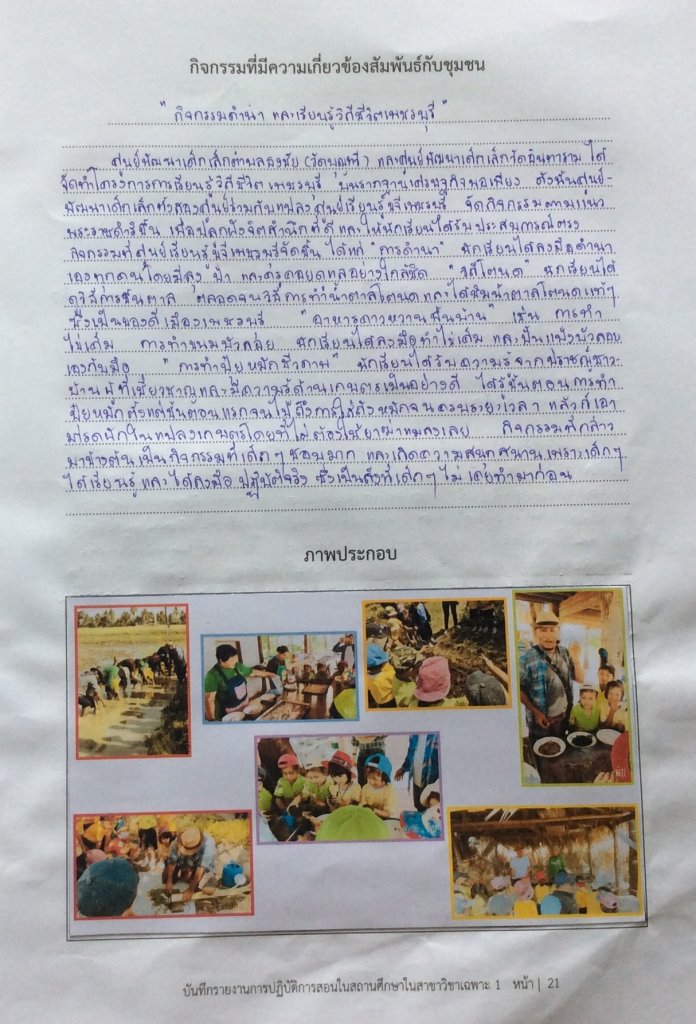 กิจกรรมที่มีความเกี่ยวข้องสัมพันธ์กับชุมชน
" กิจกรรมดำนา และเรียนรู้วิถีชีวิตเพชรบุรี "
ศูนย์พัฒนาเด็กเล็กตำบลสองชัย (วัดบุญทวี) และศูนย์พัฒนาเด็กเล็กวัดอินทาราม ได้
จัดทำโครงการการเรียนรู้วิถีชีวิต เพชรบุรี บนรากฐานเศรษฐกิจพอเพียง ดังนั้นศูนย์-
พัฒนาเด็กเล็กทั้งสองศูนย์ร่วมกับแปลงศูนย์เรียนรู้วิถีเพชรบุรี จัดกิจกรรมตามแนว
พระราชดำริขึ้น เพื่อปลูกฝังจิตสำนึกที่ดี และให้นักเรียนได้รับประสบการณ์ตรง
กิจกรรมที่ศูนย์เรียนรู้วิถีเพชรบุรีจัดขึ้น ได้แก่ "การดำนา" นักเรียนได้ลงมือดำนา
เองทุกคนโดยมีลุง ป้า และครูคอยดูแลอย่างใกล้ชิด "วิถีโตนด" นักเรียนได้
ดูวิธีการขึ้นตาล ตลอดจนวิธีการทำน้ำตาลโตนดและได้ชิมน้ำตาลโตนดแท้ๆ
ซึ่งเป็นของดีเมืองเพชรบุรี "อาหารคาวหวานพื้นบ้าน" เช่น การทำ
ไข่เค็ม การทำขนมบัวลอย นักเรียนได้ลงมือทำไข่เค็ม และปั้นแป้งบัวลอย
เองกับมือ "การทำปุ๋ยหมักชีวภาพ" นักเรียนได้รับความรู้จากปราชญ์ชาว-
บ้าน ผู้ที่เชี่ยวชาญและมีความรู้ด้านเกษตรเป็นอย่างดี ได้รู้ขั้นตอนการทำ
ปุ๋ยหมัก ตั้งแต่ขั้นตอนแรกจนไปถึงการใส่ถังหมักจนครบระยะเวลา แล้วก็เอา
มารดผักในแปลงเกษตรโดยที่ไม่ต้องใช้ยาฆ่าแมลงเลย กิจกรรมที่กล่าว
มาข้างต้นเป็นกิจกรรมที่เด็กๆ ชอบมาก และเกิดความสนุกสนานเพราะเด็กๆ
ได้เรียนรู้และได้ลงมือปฏิบัติจริง ซึ่งเป็นสิ่งที่เด็กๆ ไม่เคยทำมาก่อน
ภาพประกอบ
บันทึกรายงานการปฏิบัติการสอนในสถานศึกษาในสาขาวิชาเฉพาะ 1 หน้า | 21